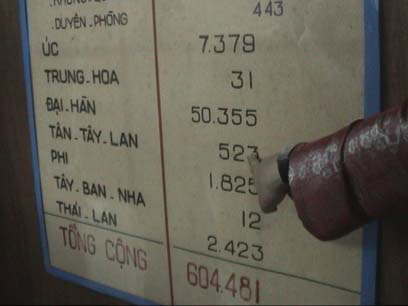 .DUYÊN-PHÒNG 443
ÚC 7.379
TRUNG-HOA 31
ĐẠI-HÀN 50.355
TÂN-TÂY-LAN 523
PHI 1.825
TÂY-BAN-NHA 12
THÁI-LAN 2.423
TỔNG CỘNG 604.481